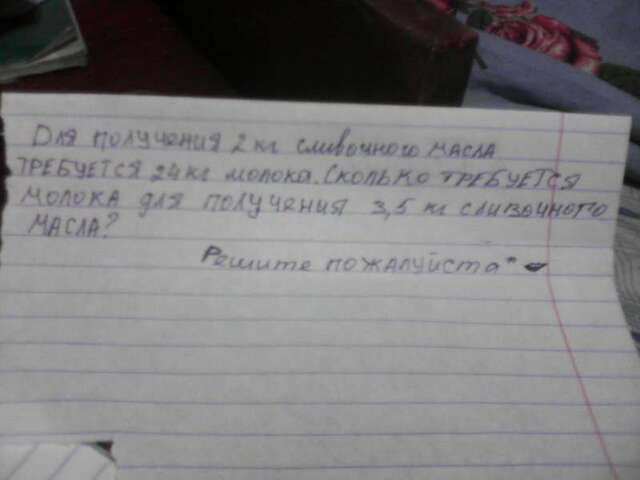 Для получения 2 кг сливочного масла
требуется 24 кг молока. Сколько требуется
молока для получения 3,5 кг сливочного
масла?
Решите пожалуйста*